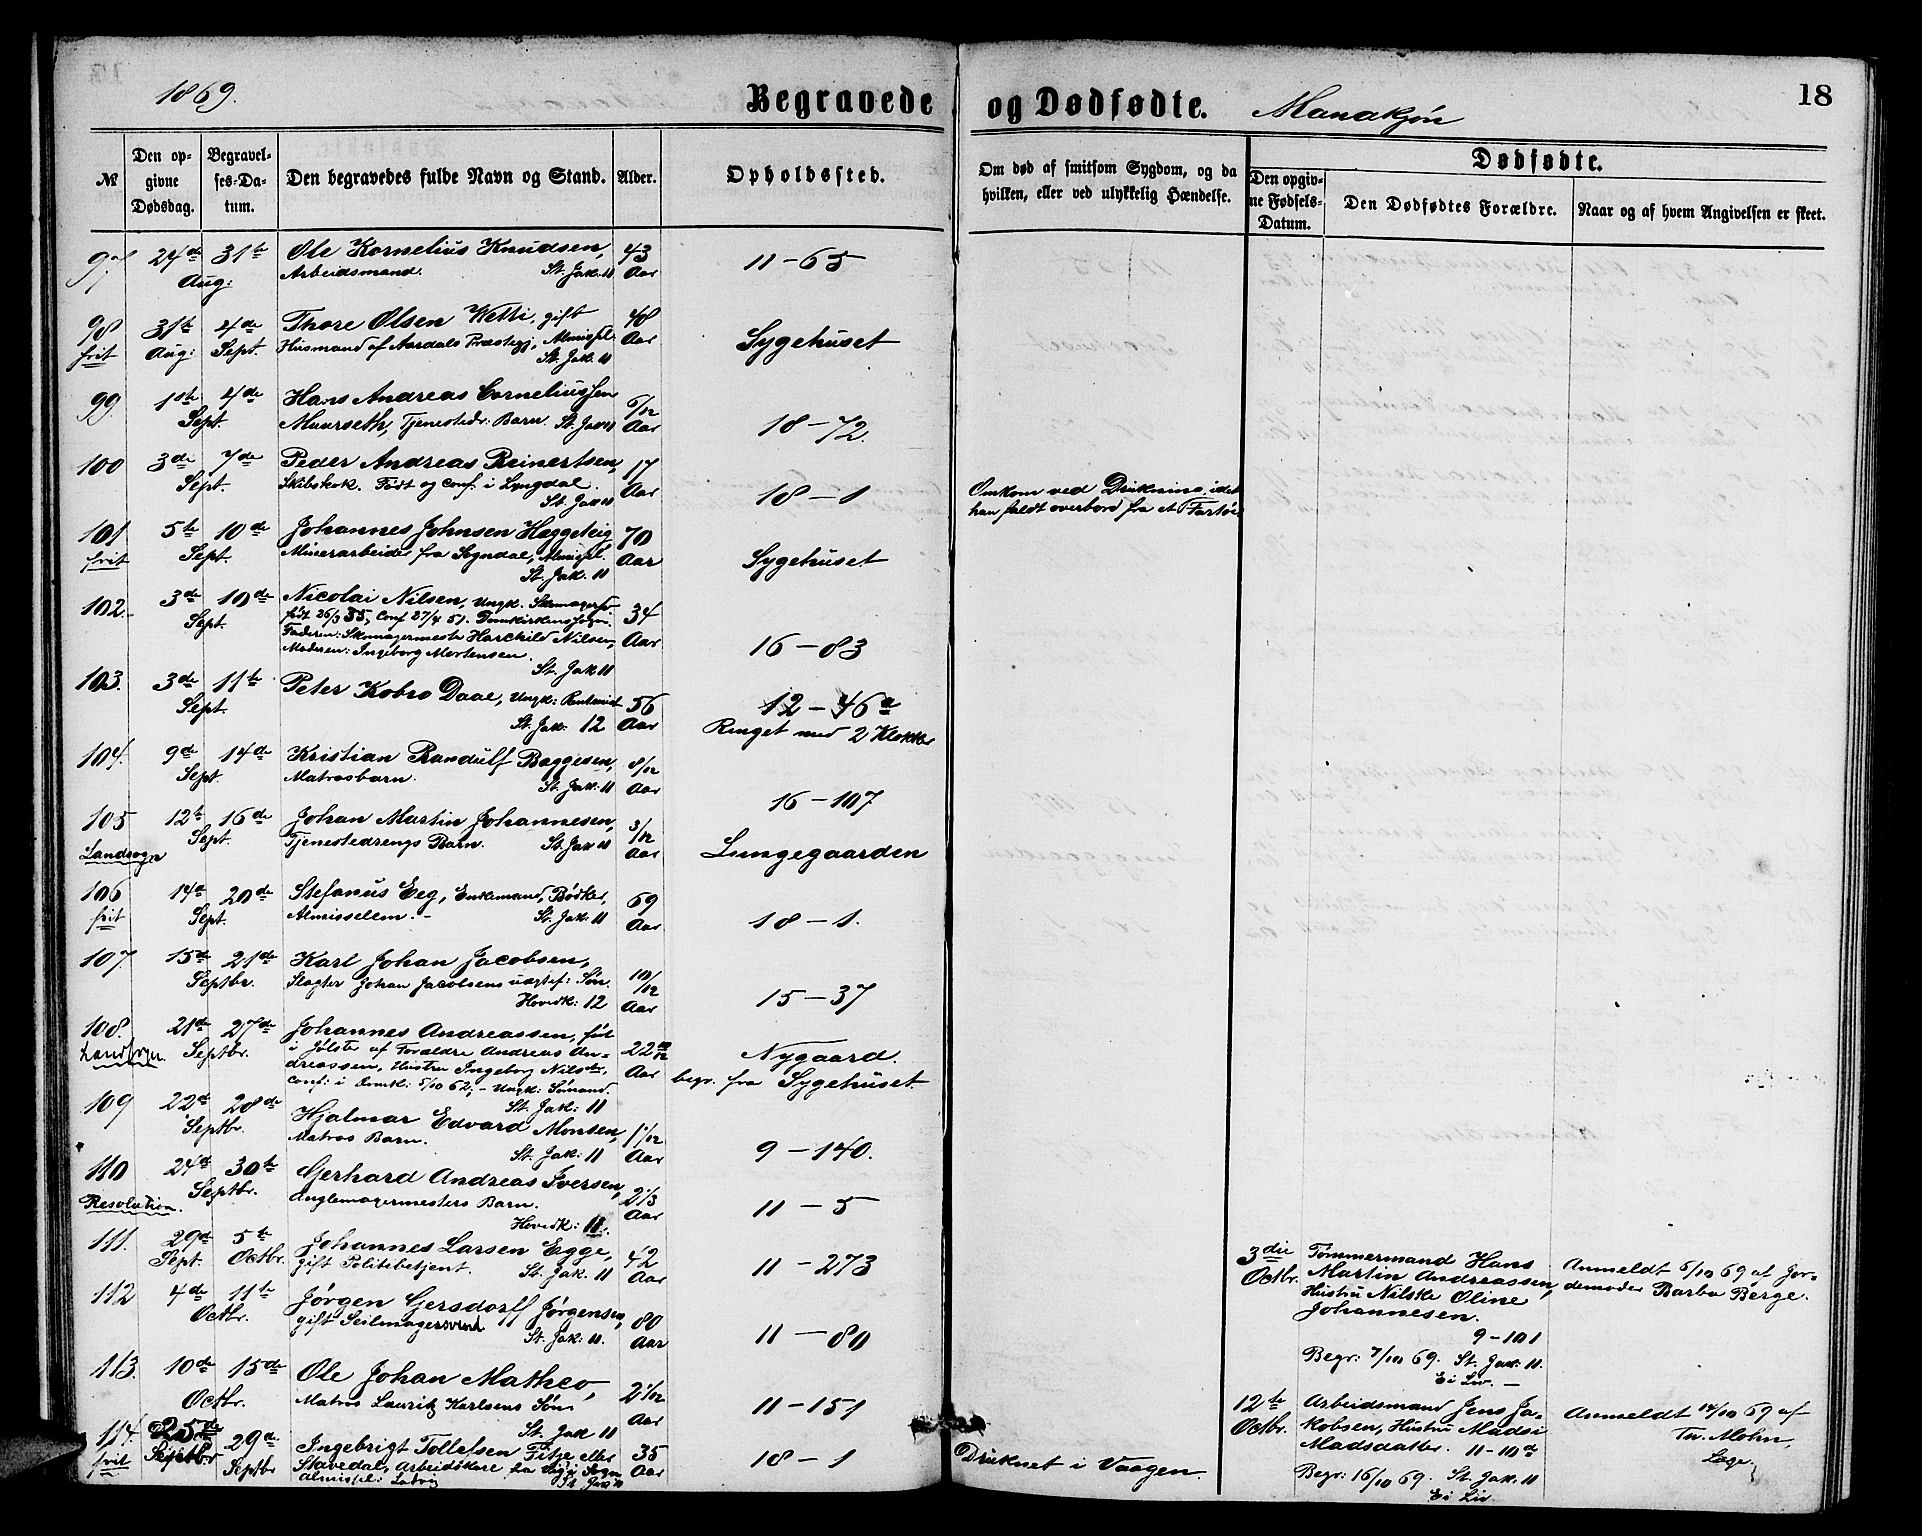 1869.
Begravede og Dødfødte. Mandkjøn
18
№
Den opgivne Dødsdag.
Begravelses-Datum.
Den begravedes fulde Navn og Stand.
Alder.
Opholdssted.
Om død af smitsom Sygdom, og da hvilken, eller ved ulykkelig Hændelse.
Dødfødte.
Den opgivne Fødsels-Datum.
Den Dødfødtes Forældre.
Naar og af hvem Angivelsen er skeet.
97 24de Aug: 31te Ole Kornelius Knudsen, 43 Aar 11-65
Arbeidsmand. St. Jak. 11
98 31te Aug: 4de Sept. Thore Olsen Wetti, gift 48 Aar Sygehuset
frit Husmand af Aardals Præstegj, Almissel.
St. Jak. 11
99 1ste Sept. 4de Hans Andreas Corneliussen 6/12 Aar 18-72.
Muurseth, Tjenestedr: Barn. St. Jak 11
100 3de Sept. 7de Peder Andreas Reinertsen, 17 Aar 18-1
Skibskok. Født og Conf. i Lyngdal.
St. Jak 11
Omkom ved Drukning, idet
han faldt overbord fra et Fartøi
101 5te Sept. 10de Johannes Johnsen Haggeteig 70 Aar Sygehuset
frit Minerarbeider fra Sogndal, Almissel.
St. Jak. 11
102. 3de Sept. 10de Nicolai Nilsen, Ungk. 34 Aar 16-83
født 26/3 35, Conf 27/4 51. Domkirkens Sogn.
Faderen: Skomagermester Harchild Nilsen,
Moderen: Ingeborg Mortensen.
St. Jak 11
103. 3de Sept. 11te Peter Kobro Daae, Ungk: 56 Aar 12-46a
St. Jak: 12 Ringet med 2 Klokker
104. 9de Sept. 14de Kristian Randulf Baggesen, 8/12 Aar 16-107
Matrosbarn. St. Jak: 11
105 12te Sept. 16de Johan Martin Johannesen, 3/12 Aar Lungegaarden
Landsogn Tjenestedrengs Barn. St. Jak 11
106 14de Sept. 20de Stefanus Eeg, Enkemand, Bødker, 69 Aar 18-1.
frit Almisselem. - St. Jak. 11
107 15de Septbr. 21de Karl Johan Jacobsen, 10/12 Aar 15-37
Slagter Johan Jacobsens Søn.
Hovedk: 12
108. 21de Septbr. 27de Johannes Andreassen, fød 22 Aar Nygaard.
Landsogn i Jølster af Forældre Andreas An-
dreassen, Hustru Ingeborg Nilsdtr, begr. fra Sygehuset.
Conf: i Domk: 5/10 62, - Ungk: Sømand.
St. Jak: 11
109 22de Septbr. 28de Hjalmar Edvard Monsen, 1 1/12 Aar 9-140.
Matros Barn. St. Jak: 11
110 24de Septbr. 30te Gerhard Andreas Iversen, 2 1/3 Aar 11-5
Resolution. Barn.
Hovedk: 11.
111. 29de Sept. 5te Octbr. Johannes Larsen Egge, 42 Aar 11-273
gift Politibetjent. St. Jak. 11
112 4de Octbr. 11te Jørgen Gersdorff Jørgensen, 80 Aar 11-80
gift Seilmagersvend St. Jak: 11.
113 10de Octbr. 15de Ole Johan Matheo, 2 1/12 Aar 11-151
Matros Lauritz Karlsens Søn.
St. Jak 11
114. 25de Septbr 29de Septbr Ingebrigt Tollefsen Titje eller 35 Aar 18-1
frit Stavedal, Arbeidskare fra Sogn
Almissel: St Jak 11
Druknet i Vaagen.
3die Octbr. Tømmermand Hans
Martin Andreassen,
Hustru Nilske Oline
Johannesen.
9-101
Begr: 7/10 69. St. Jak: 11.
Ei Liv. -
Anmeldt 5/10 69 af Jor-
demoder Barba Berge.
12te Octbr. Arbeidsmand Jens Ja-
kobsen, Hustru Madsi
Madsdatter. 11-10a
Begr: 16/10 69. St. Jak. 11
Ei Liv
Anmeldt 14/10 69 af
Læge.